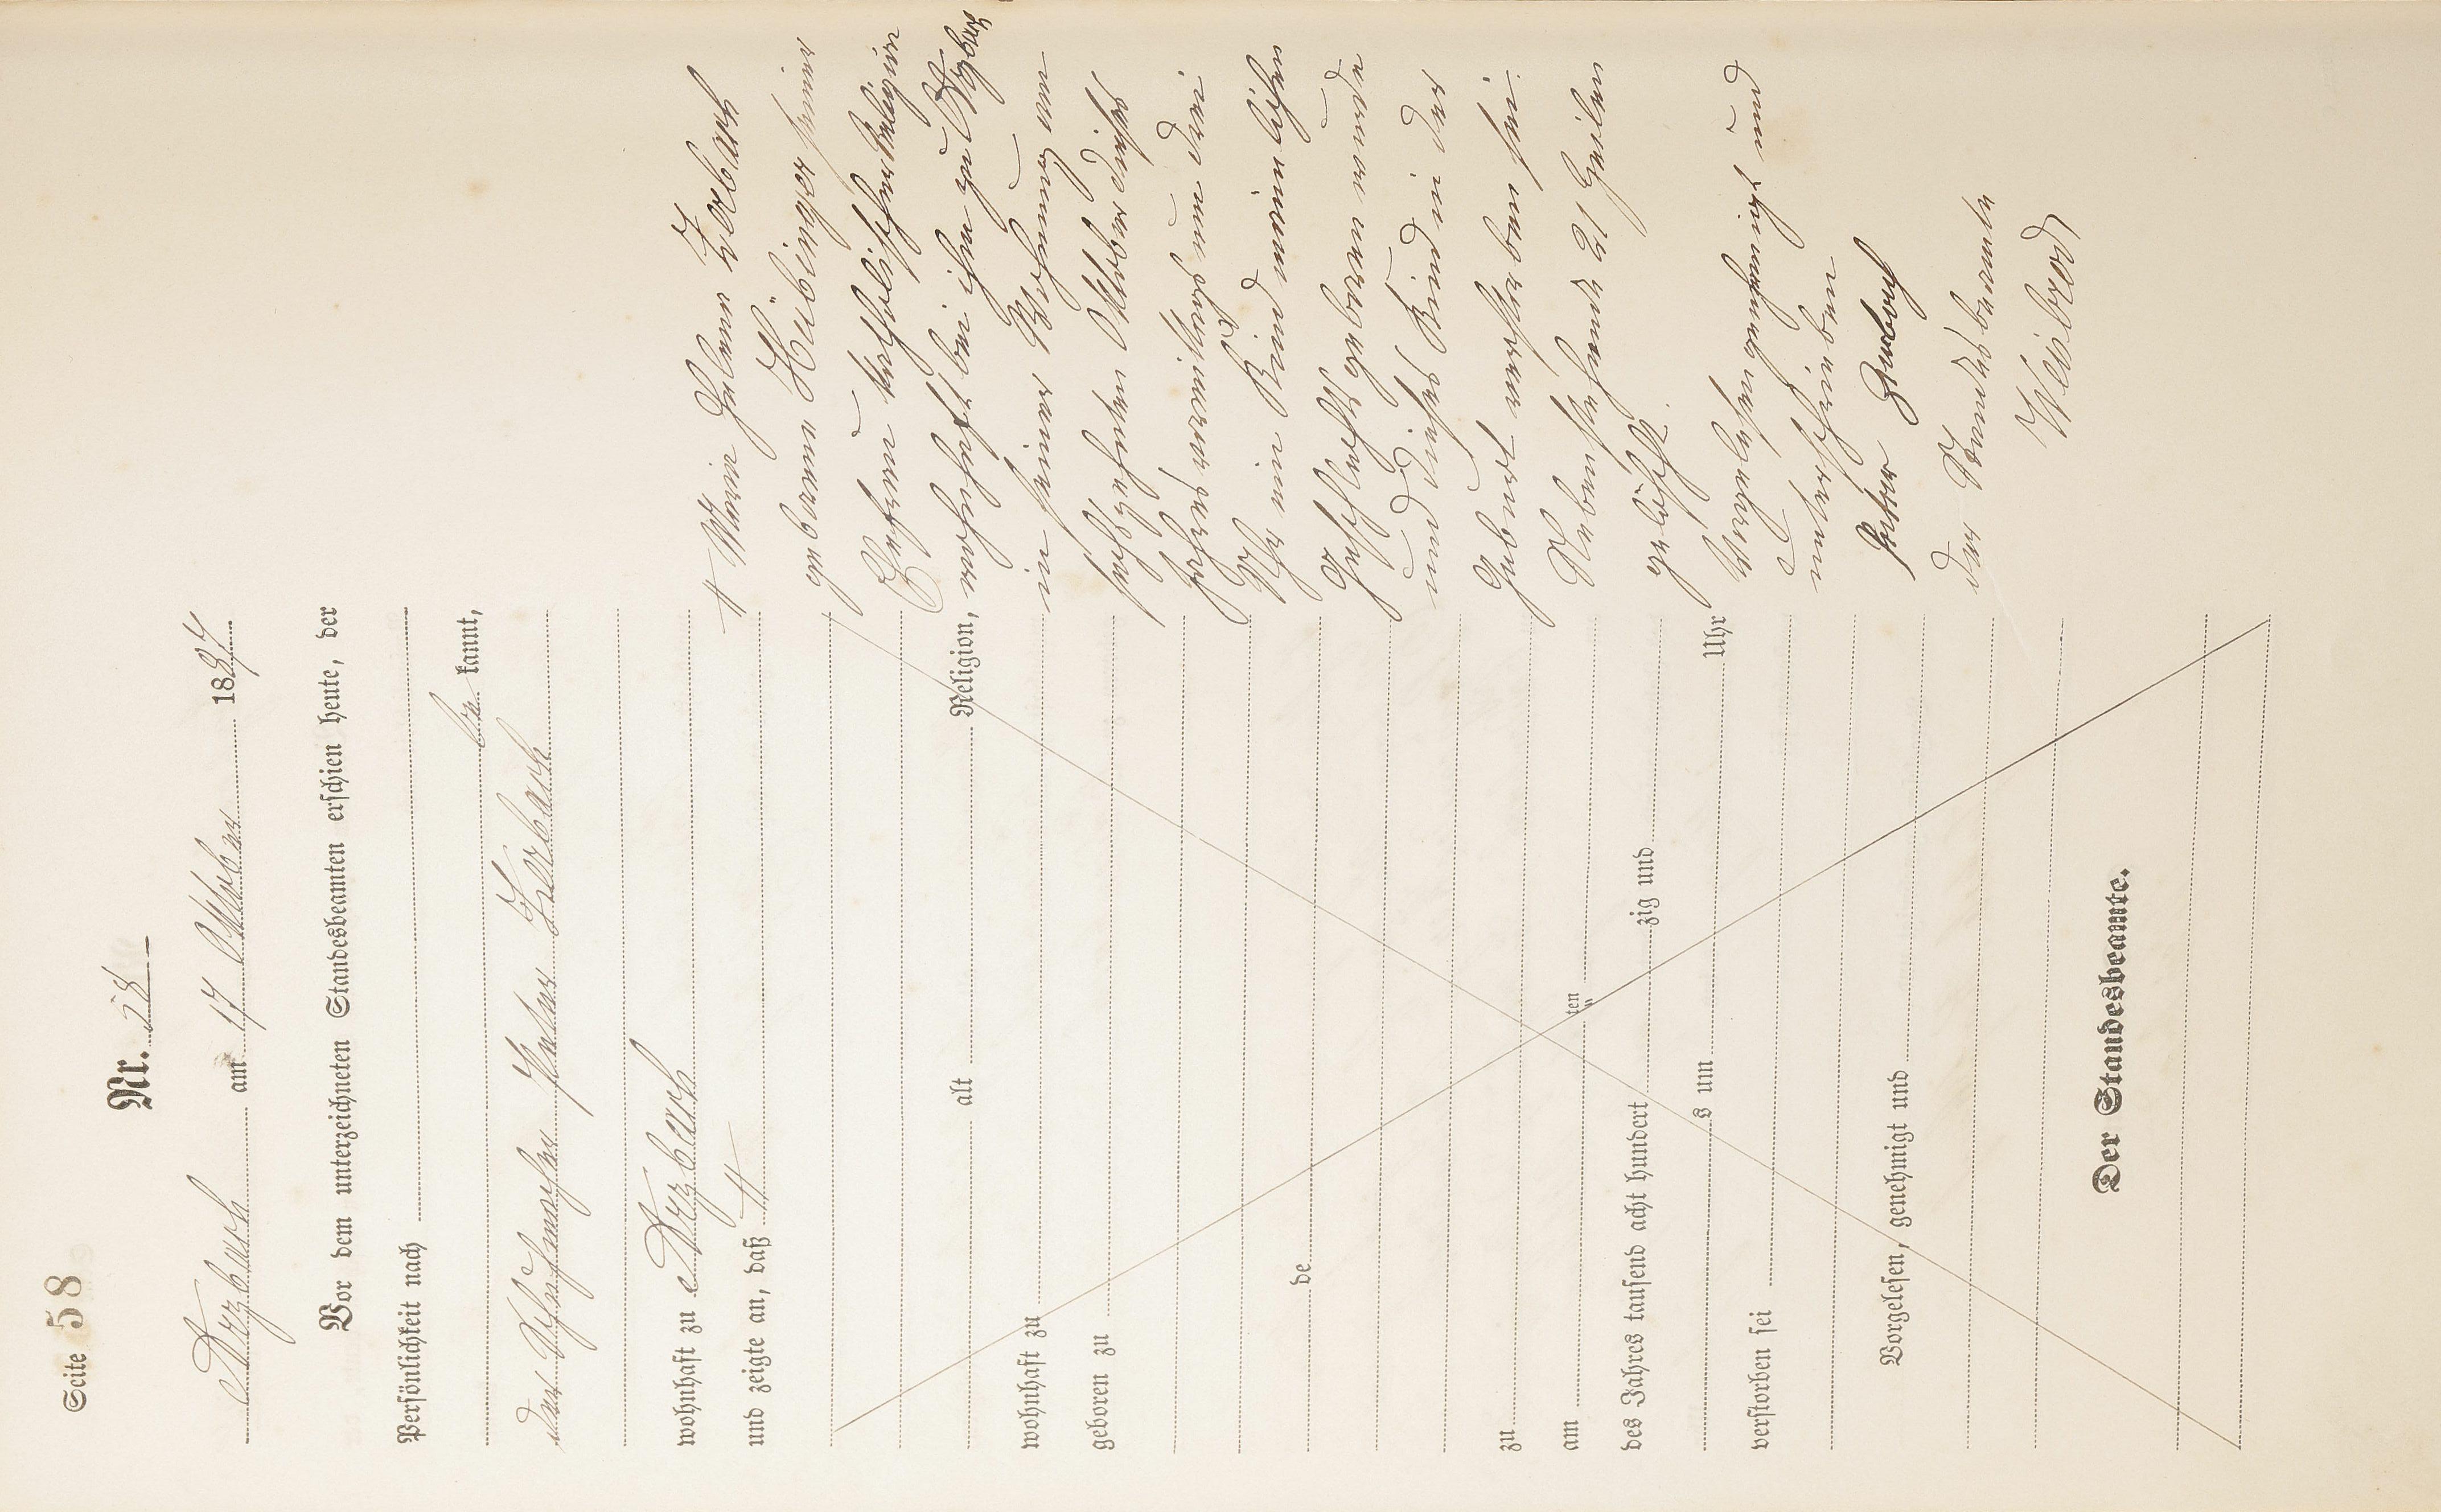 Seite 58
Nr. 28
Arzbach am 17 Oktober 1887
Vor dem unterzeichneten Standesbeamten erschien heute, der
Persönlichkeit nach
be kannt,
der Schuhmacher Peter Zerbach
wohnhaft zu Arzbach
und zeigte an, daß #
alt Religion,
wohnhaft zu
geboren zu
de
zu
am ten
des Jahres tausend acht hundert zig und
s um Uhr
verstorben sei
Vorgelesen, genehmigt und
Der Standesbeamte.
# Maria Helena Zerbach
geborene Hübinger seiner
Ehefrau katholischer Religion
wohnhaft bei ihm zu Arzbach
in seiner Wohnung am
sechszehnten Oktober dieses
Jahres vormittags um drei
Uhr ein Kind männlichen
Geschlechts geboren wurde
und dieses Kind in der
Geburt verstorben sei.
Nebenstehende 21 Zeilen
gelöscht.
Vorgelesen genehmigt und
unterschrieben
Peter Zerbach
Der Standesbeamte
Weisbrod